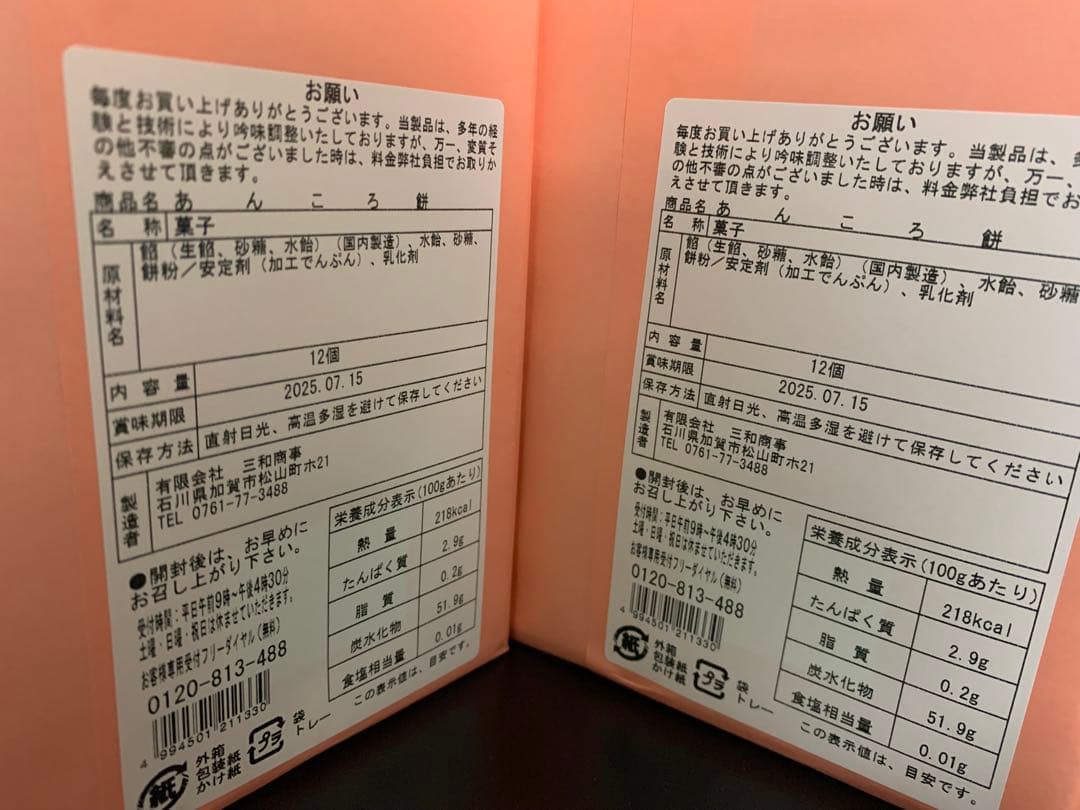 お願い
毎度お買い上げありがとうございます。当製品は、多年の経
験と技術により吟味調整いたしておりますが、万一、変質そ
の他不審の点がございました時は、料金弊社負担でお取りか
えさせて頂きます。
商品名 あんころ餅
名称 菓子
原材料名 餡（生餡、砂糖、水飴）（国内製造）、水飴、砂糖、
餅粉／安定剤（加工でんぷん）、乳化剤
内容量 12個
賞味期限 2025.07.15
保存方法 直射日光、高温多湿を避けて保存してください
製造者 有限会社 三和商事
石川県加賀市松山町ホ21
TEL 0761-77-3488
●開封後は、お早めに
お召し上がり下さい。
受付時間：平日午前9時～午後4時30分
土曜・日曜・祝日は休ませていただきます。
お客様専用受付フリーダイヤル（無料）
0120-813-488
4 994501 211330
紙 外箱
包装紙
かけ紙
プラ 袋
トレー
栄養成分表示(100gあたり)
熱量 218kcal
たんぱく質 2.9g
脂質 0.2g
炭水化物 51.9g
食塩相当量 0.01g
この表示値は、目安です。
お願い
毎度お買い上げありがとうございます。当製品は、
験と技術により吟味調整いたしておりますが、万一、
の他不審の点がございました時は、料金弊社負担でお
えさせて頂きます。
商品名 あんころ餅
名称 菓子
原材料名 餡（生餡、砂糖、水飴）（国内製造）、水飴、砂糖
餅粉／安定剤（加工でんぷん）、乳化剤
内容量 12個
賞味期限 2025.07.15
保存方法 直射日光、高温多湿を避けて保存してください
製造者 有限会社 三和商事
石川県加賀市松山町ホ21
TEL 0761-77-3488
●開封後は、お早めに
お召し上がり下さい。
受付時間：平日午前9時～午後4時30分
土曜・日曜・祝日は休ませていただきます。
お客様専用受付フリーダイヤル（無料）
0120-813-488
4 994501 211330
紙 外箱
包装紙
かけ紙
プラ 袋
トレー
栄養成分表示(100gあたり)
熱量 218kcal
たんぱく質 2.9g
脂質 0.2g
炭水化物 51.9g
食塩相当量 0.01g
この表示値は、目安です。